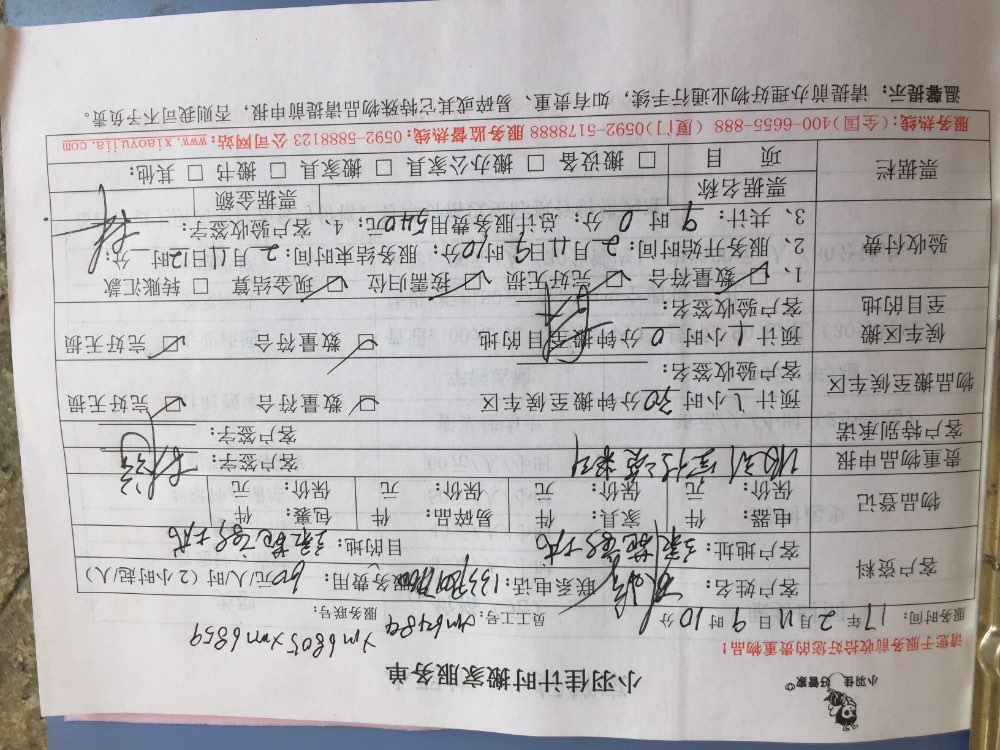 小羽佳 好管家
小羽佳计时搬家服务单
请您于服务前收拾好您的贵重物品！
xm6805 xm6859
服务时间： 17年 2月 11日 9时 10分 员工工号： 服务联号：
客户资料 客户姓名： 联系电话： 服务费用： 60元/人/时（2小时起/人）
客户地址： 目的地：
物品登记 电器： 件 家具： 件 易碎品： 件 包裹： 件
保价： 元 保价： 元 保价： 元 保价： 元
贵重物品申报 客户签字：
客户特别承诺 客户签字：
物品搬至候车区 预计 小时 30 分钟搬至候车区 ☑ 数量符合 ☑ 完好无损
客户验收签名：
候车区搬至目的地 预计 小时 0 分钟搬至目的地 ☑ 数量符合 ☑ 完好无损
客户验收签名：
验收付费 1、☑ 数量符合 ☑ 完好无损 ☑ 按需归位 ☑ 现金结算 ☐ 转账汇款
2、服务开始时间：2月11日9时10分；服务结束时间：2月11日12时 分；
3、共计：9时0分；总计服务费用540元；4、客户验收签字：
票据栏 票据名称 票据金额
项 目 ☐ 搬设备 ☐ 搬办公家具 ☐ 搬家具 ☐ 搬书 ☐ 其他：
服务热线：(全国)400-6655-888 (厦门)0592-5178888 服务监督热线：0592-5888123 公司网站：www.xiaoyujia.com
温馨提示：请提前办理好物业通行手续，如有贵重、易碎或其它特殊物品请提前申报，否则我司不予负责。